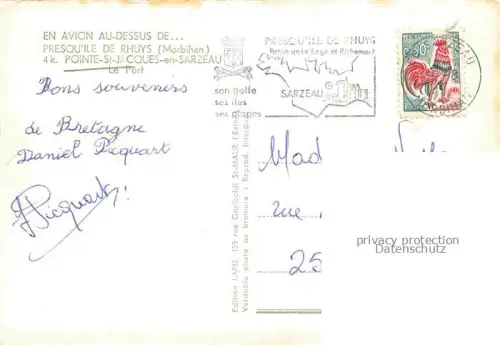 EN AVION AU-DESSUS DE...
PRESQU'ILE DE RHUYS (Morbihan)
4 k. POINTE-St-JACQUES-en-SARZEAU
Le Port
Bons souvenirs
de Bretagne
Daniel Picquart
Picquart
PRESQU'ILE DE RHUYS
Patrie de Le Sage et Richemont
SARZEAU
son golfe
ses îles
ses plages
Edition LAPIE 175 rue Garibaldi St-MAUR (Seine)
Véritable photo au bromure - Reprod. Interdite
Mad
rue
25
privacy protection
Datenschutz